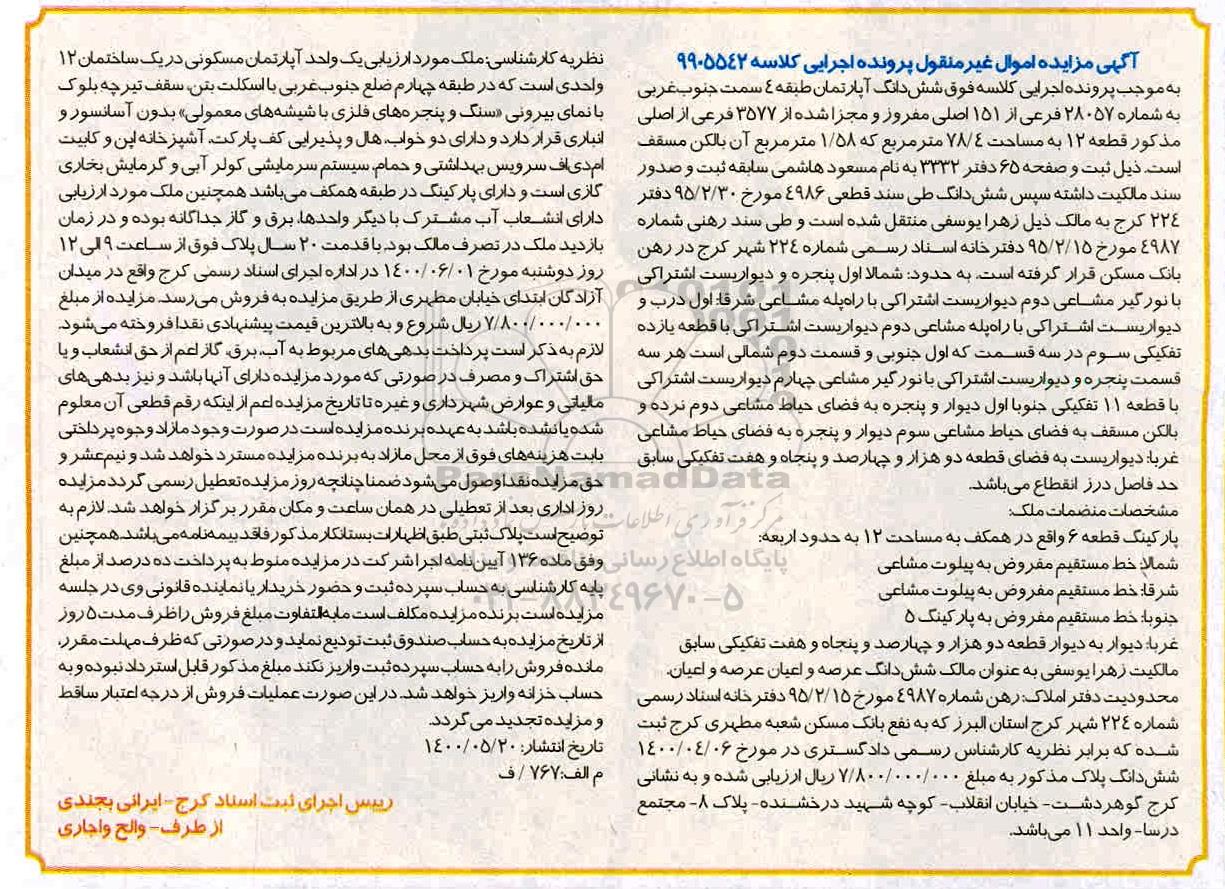 آگهی مزایده اموال غیرمنقول پرونده اجرایی کلاسه ۹۹۰۵۵۴۲
به موجب پرونده اجرایی کلاسه فوق شش‌دانگ آپارتمان طبقه ۴ سمت جنوب‌غربی
به شماره ۲۸۰۵۷ فرعی از ۱۵۱ اصلی مفروز و مجزا شده از ۳۵۷۷ فرعی از اصلی
مذکور قطعه ۱۲ به مساحت ۷۸/۴ مترمربع که ۱/۵۸ مترمربع آن بالکن مسقف
است. ذیل ثبت و صفحه ۶۵ دفتر ۳۳۳۲ به نام مسعود هاشمی سابقه ثبت و صدور
سند مالکیت داشته سپس شش‌دانگ طی سند قطعی ۴۹۸۶ مورخ ۹۵/۲/۳۰ دفتر
۲۲۴ کرج به مالک ذیل زهرا یوسفی منتقل شده است و طی سند رهنی شماره
۴۹۸۷ مورخ ۹۵/۲/۱۵ دفترخانه اسناد رسمی شماره ۲۲۴ شهر کرج در رهن
بانک مسکن قرار گرفته است. به حدود: شمالا اول پنجره و دیواریست اشتراکی
با نورگیر مشاعی دوم دیواریست اشتراکی با راه‌پله مشاعی شرقا: اول درب و
دیواریست اشتراکی با راه‌پله مشاعی دوم دیواریست اشتراکی با قطعه یازده
تفکیکی سوم در سه قسمت که اول جنوبی و قسمت دوم شمالی است هر سه
قسمت پنجره و دیواریست اشتراکی با نورگیر مشاعی چهارم دیواریست اشتراکی
با قطعه ۱۱ تفکیکی جنوبا اول دیوار و پنجره به فضای حیاط مشاعی دوم نرده و
بالکن مسقف به فضای حیاط مشاعی سوم دیوار و پنجره به فضای حیاط مشاعی
غربا: دیواریست به فضای قطعه دو هزار و چهارصد و پنجاه و هفت تفکیکی سابق
حد فاصل درز انقطاع می‌باشد.
مشخصات منضمات ملک:
پارکینگ قطعه ۶ واقع در همکف به مساحت ۱۲ به حدود اربعه:
شمالا: خط مستقیم مفروض به پیلوت مشاعی
شرقا: خط مستقیم مفروض به پیلوت مشاعی
جنوبا: خط مستقیم مفروض به پارکینگ ۵
غربا: دیوار به دیوار قطعه دو هزار و چهارصد و پنجاه و هفت تفکیکی سابق
مالکیت زهرا یوسفی به عنوان مالک شش‌دانگ عرصه و اعیان عرصه و اعیان.
محدودیت دفتر املاک: رهن شماره ۴۹۸۷ مورخ ۹۵/۲/۱۵ دفترخانه اسناد رسمی
شماره ۲۲۴ شهر کرج استان البرز که به نفع بانک مسکن شعبه مطهری کرج ثبت
شده که برابر نظریه کارشناس رسمی دادگستری در مورخ ۱۴۰۰/۰۴/۰۶
شش‌دانگ پلاک مذکور به مبلغ ۷/۸۰۰/۰۰۰/۰۰۰ ریال ارزیابی شده و به نشانی
کرج گوهردشت- خیابان انقلاب- کوچه شهید درخشنده- پلاک ۸- مجتمع
درسا- واحد ۱۱ می‌باشد.
نظریه کارشناسی: ملک مورد ارزیابی یک واحد آپارتمان مسکونی در یک ساختمان ۱۲
واحدی است که در طبقه چهارم ضلع جنوب‌غربی با اسکلت بتن، سقف تیرچه بلوک
با نمای بیرونی «سنگ و پنجره‌های فلزی با شیشه‌های معمولی» بدون آسانسور و
انباری قرار دارد و دارای دو خواب، هال و پذیرایی کف پارکت، آشپزخانه اپن و کابینت
ام‌دی‌اف سرویس بهداشتی و حمام، سیستم سرمایشی کولر آبی و گرمایش بخاری
گازی است و دارای پارکینگ در طبقه همکف می‌باشد همچنین ملک مورد ارزیابی
دارای انشعاب آب مشترک با دیگر واحدها، برق و گاز جداگانه بوده و در زمان
بازدید ملک در تصرف مالک بود. با قدمت ۲۰ سال پلاک فوق از ساعت ۹ الی ۱۲
روز دوشنبه مورخ ۱۴۰۰/۰۶/۰۱ در اداره اجرای اسناد رسمی کرج واقع در میدان
آزادگان ابتدای خیابان مطهری از طریق مزایده به فروش می‌رسد. مزایده از مبلغ
۷/۸۰۰/۰۰۰/۰۰۰ ریال شروع و به بالاترین قیمت پیشنهادی نقدا فروخته می‌شود.
لازم به ذکر است پرداخت بدهی‌های مربوط به آب، برق، گاز اعم از حق انشعاب و یا
حق اشتراک و مصرف در صورتی که مورد مزایده دارای آنها باشد و نیز بدهی‌های
مالیاتی و عوارض شهرداری و غیره تا تاریخ مزایده اعم از اینکه رقم قطعی آن معلوم
شده یا نشده باشد به عهده برنده مزایده است در صورت وجود مازاد وجوه پرداختی
بابت هزینه‌های فوق از محل مازاد به برنده مزایده مسترد خواهد شد و نیم‌عشر و
حق مزایده نقدا وصول می‌شود ضمنا چنانچه روز مزایده تعطیل رسمی گردد مزایده
روز اداری بعد از تعطیلی در همان ساعت و مکان مقرر برگزار خواهد شد. لازم به
توضیح است پلاک ثبتی طبق اظهارات بستانکار مذکور فاقد بیمه‌نامه می‌باشد. همچنین
وفق ماده ۱۳۶ آیین‌نامه اجرا شرکت در مزایده منوط به پرداخت ده درصد از مبلغ
پایه کارشناسی به حساب سپرده ثبت و حضور خریدار یا نماینده قانونی وی در جلسه
مزایده است برنده مزایده مکلف است مابه‌التفاوت مبلغ فروش را ظرف مدت ۵ روز
از تاریخ مزایده به حساب صندوق ثبت تودیع نماید و در صورتی که ظرف مهلت مقرر،
مانده فروش را به حساب سپرده ثبت واریز نکند مبلغ مذکور قابل استرداد نبوده و به
حساب خزانه واریز خواهد شد. در این صورت عملیات فروش از درجه اعتبار ساقط
و مزایده تجدید می‌گردد.
تاریخ انتشار: ۱۴۰۰/۰۵/۲۰
م الف: ۷۶۷ / ف
رییس اجرای ثبت اسناد کرج- ایرانی بجندی
از طرف- والح واجاری
ParsNamadData
پایگاه اطلاع رسانی
۰۲۱-۸۸۳۴۹۶۷۰-۵